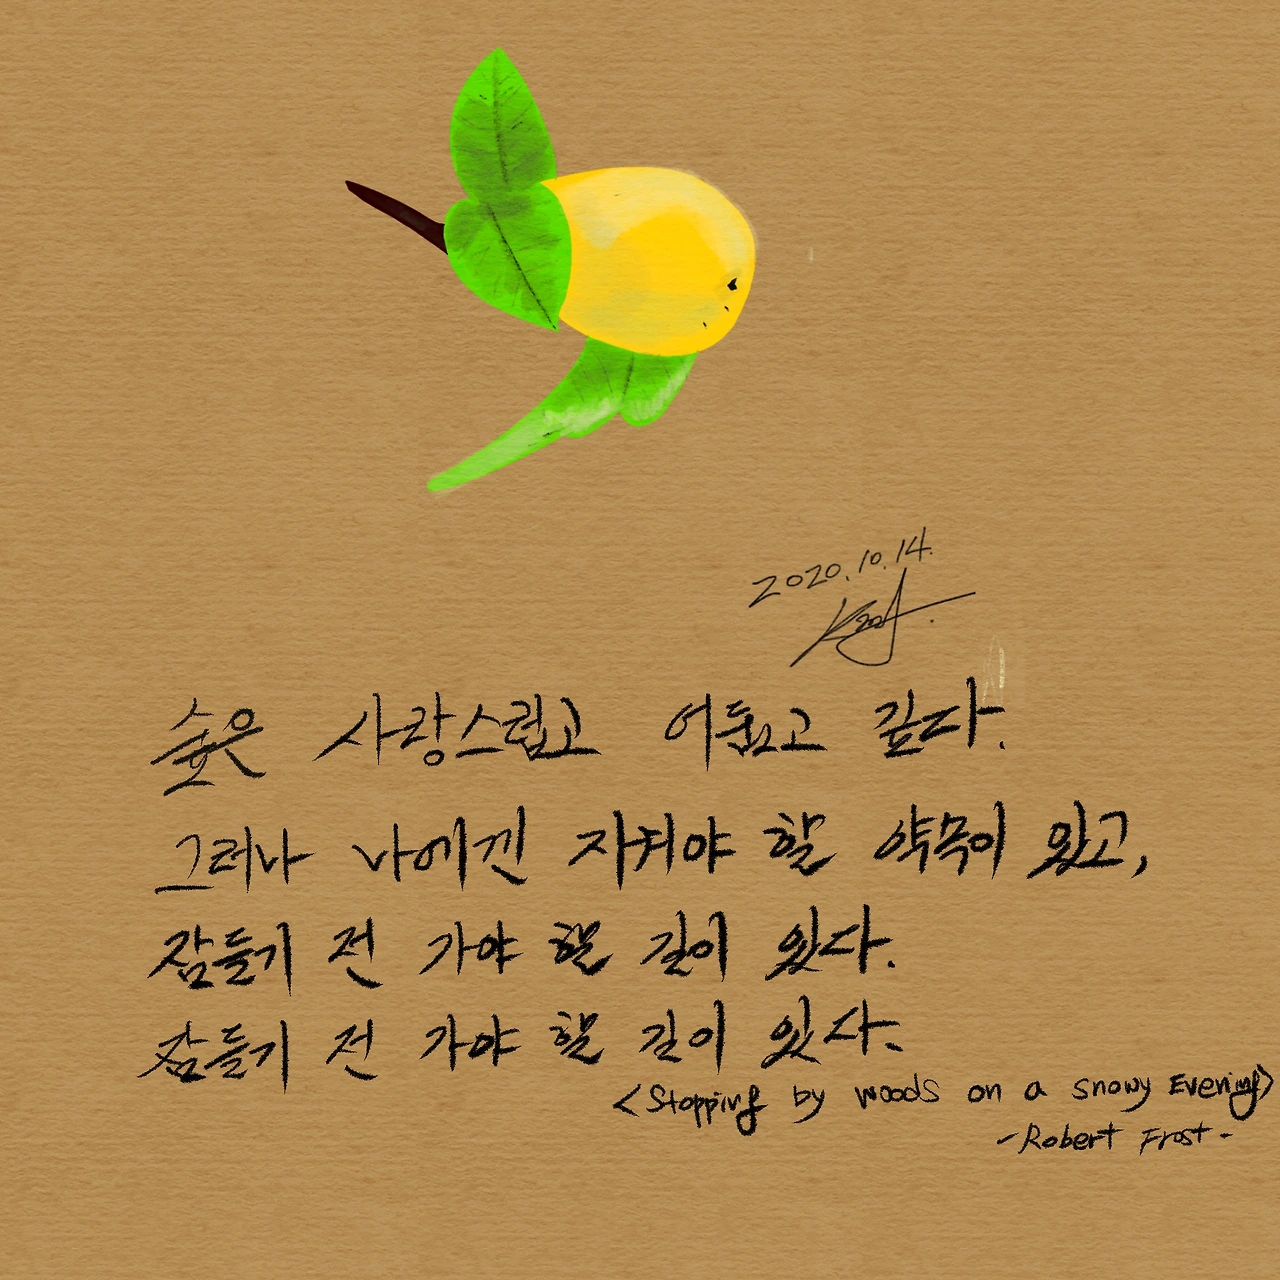 2020.10.14.
숲은 사랑스럽고 어둡고 깊다.
그러나 나에겐 지켜야 할 약속이 있고,
잠들기 전 가야 할 길이 있다.
잠들기 전 가야 할 길이 있다.
<Stopping by woods on a snowy Evening>
-Robert Frost-